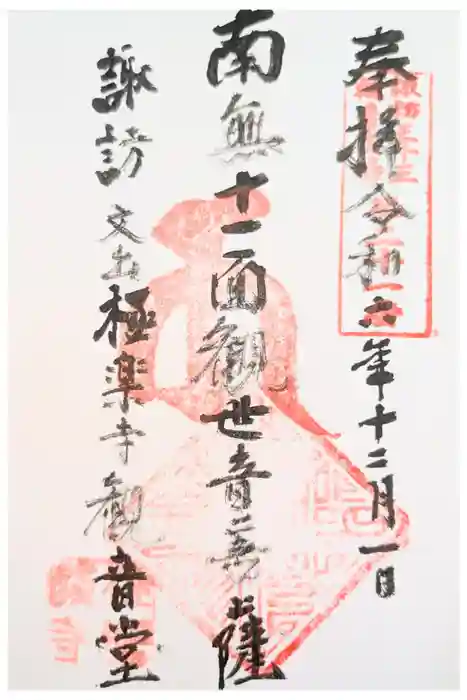 奉拝 令和六年十二月一日
南無十一面観世音菩薩
諏訪 文出 極楽寺観音堂